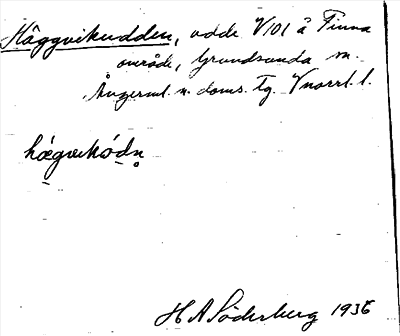 Häggvikudden, udde V101 å Finna
område, Grundsunda sn.
Ångerml. n. doms. Tg. Vnorrl. l.
hǽgvikódn̥
H A Söderberg 1936